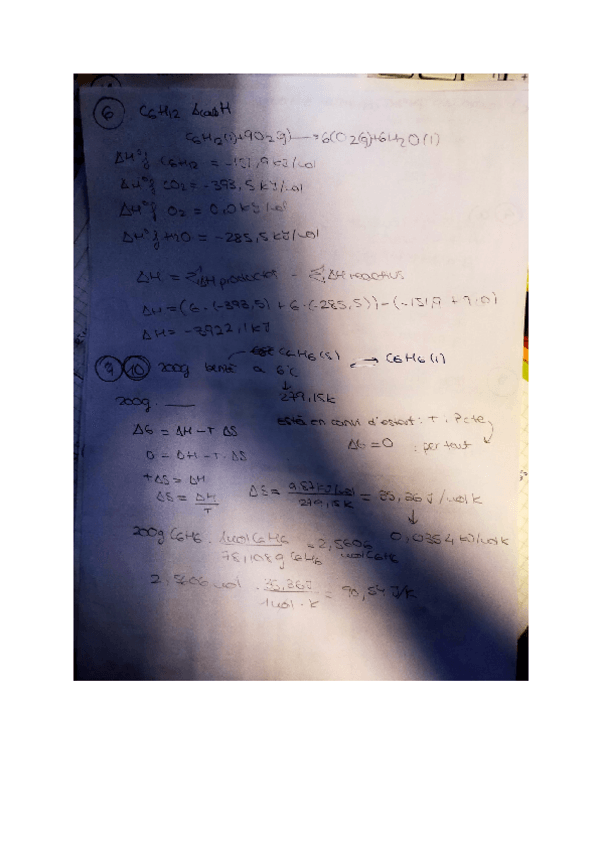 6 C6H12 ΔcombH
C6H12(l)+9O2(g)→6CO2(g)+6H2O(l)
ΔHºf C6H12 = -151,9 kJ/mol
ΔHºf CO2 = -393,5 kJ/mol
ΔHºf O2 = 0,0 kJ/mol
ΔHºf H2O = -285,5 kJ/mol
ΔH = ΣΔH productes - ΣΔH reactius
ΔH = (6·(-393,5) + 6·(-285,5)) - (-151,9 + 9·0)
ΔH = -3922,1 kJ
C6H6(s) → C6H6(l)
9 10 200g benzè a 6ºC
279,15K
200g.
està en canvi d'estat: T i P cte
ΔG = ΔH - T·ΔS
ΔG = 0 : per tant
0 = ΔH - T·ΔS
T·ΔS = ΔH
ΔS = ΔH/T
ΔS = 9,87 kJ/mol / 279,15K = 35,36 J/mol K
0,0354 kJ/mol K
200g C6H6 · 1 mol C6H6 / 78,108g C6H6 = 2,5606 mol C6H6
2,5606 mol · 35,36 J / 1 mol · K = 90,54 J/K